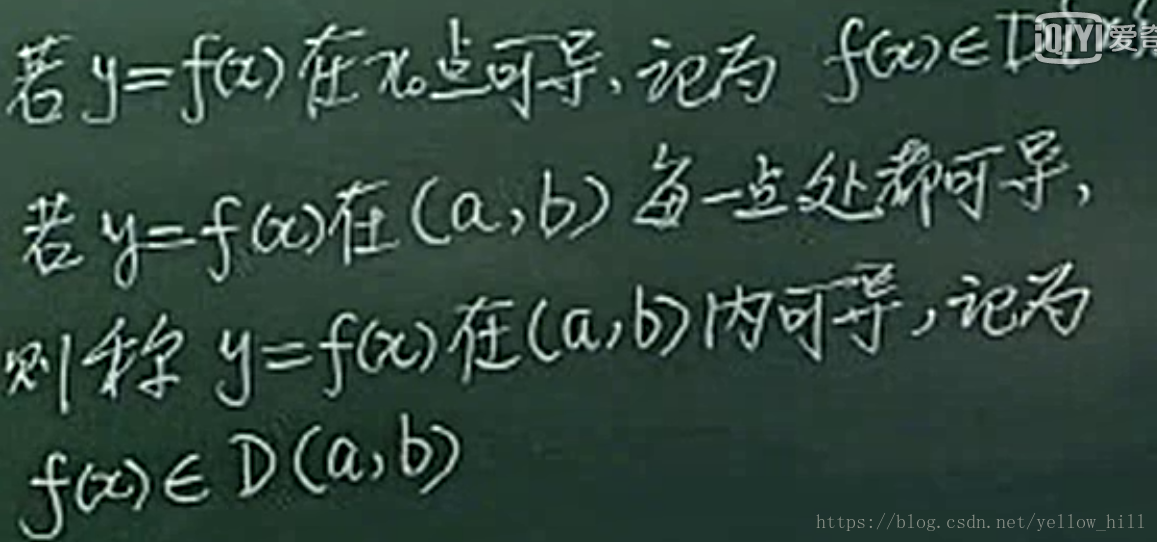 若 y=f(x) 在 x₀ 点可导,记为 f(x)∈D
iQIYI 爱奇
若 y=f(x) 在 (a,b) 每一点处都可导,
则称 y=f(x) 在 (a,b) 内可导,记为
f(x)∈D(a,b)
https://blog.csdn.net/yellow_hill